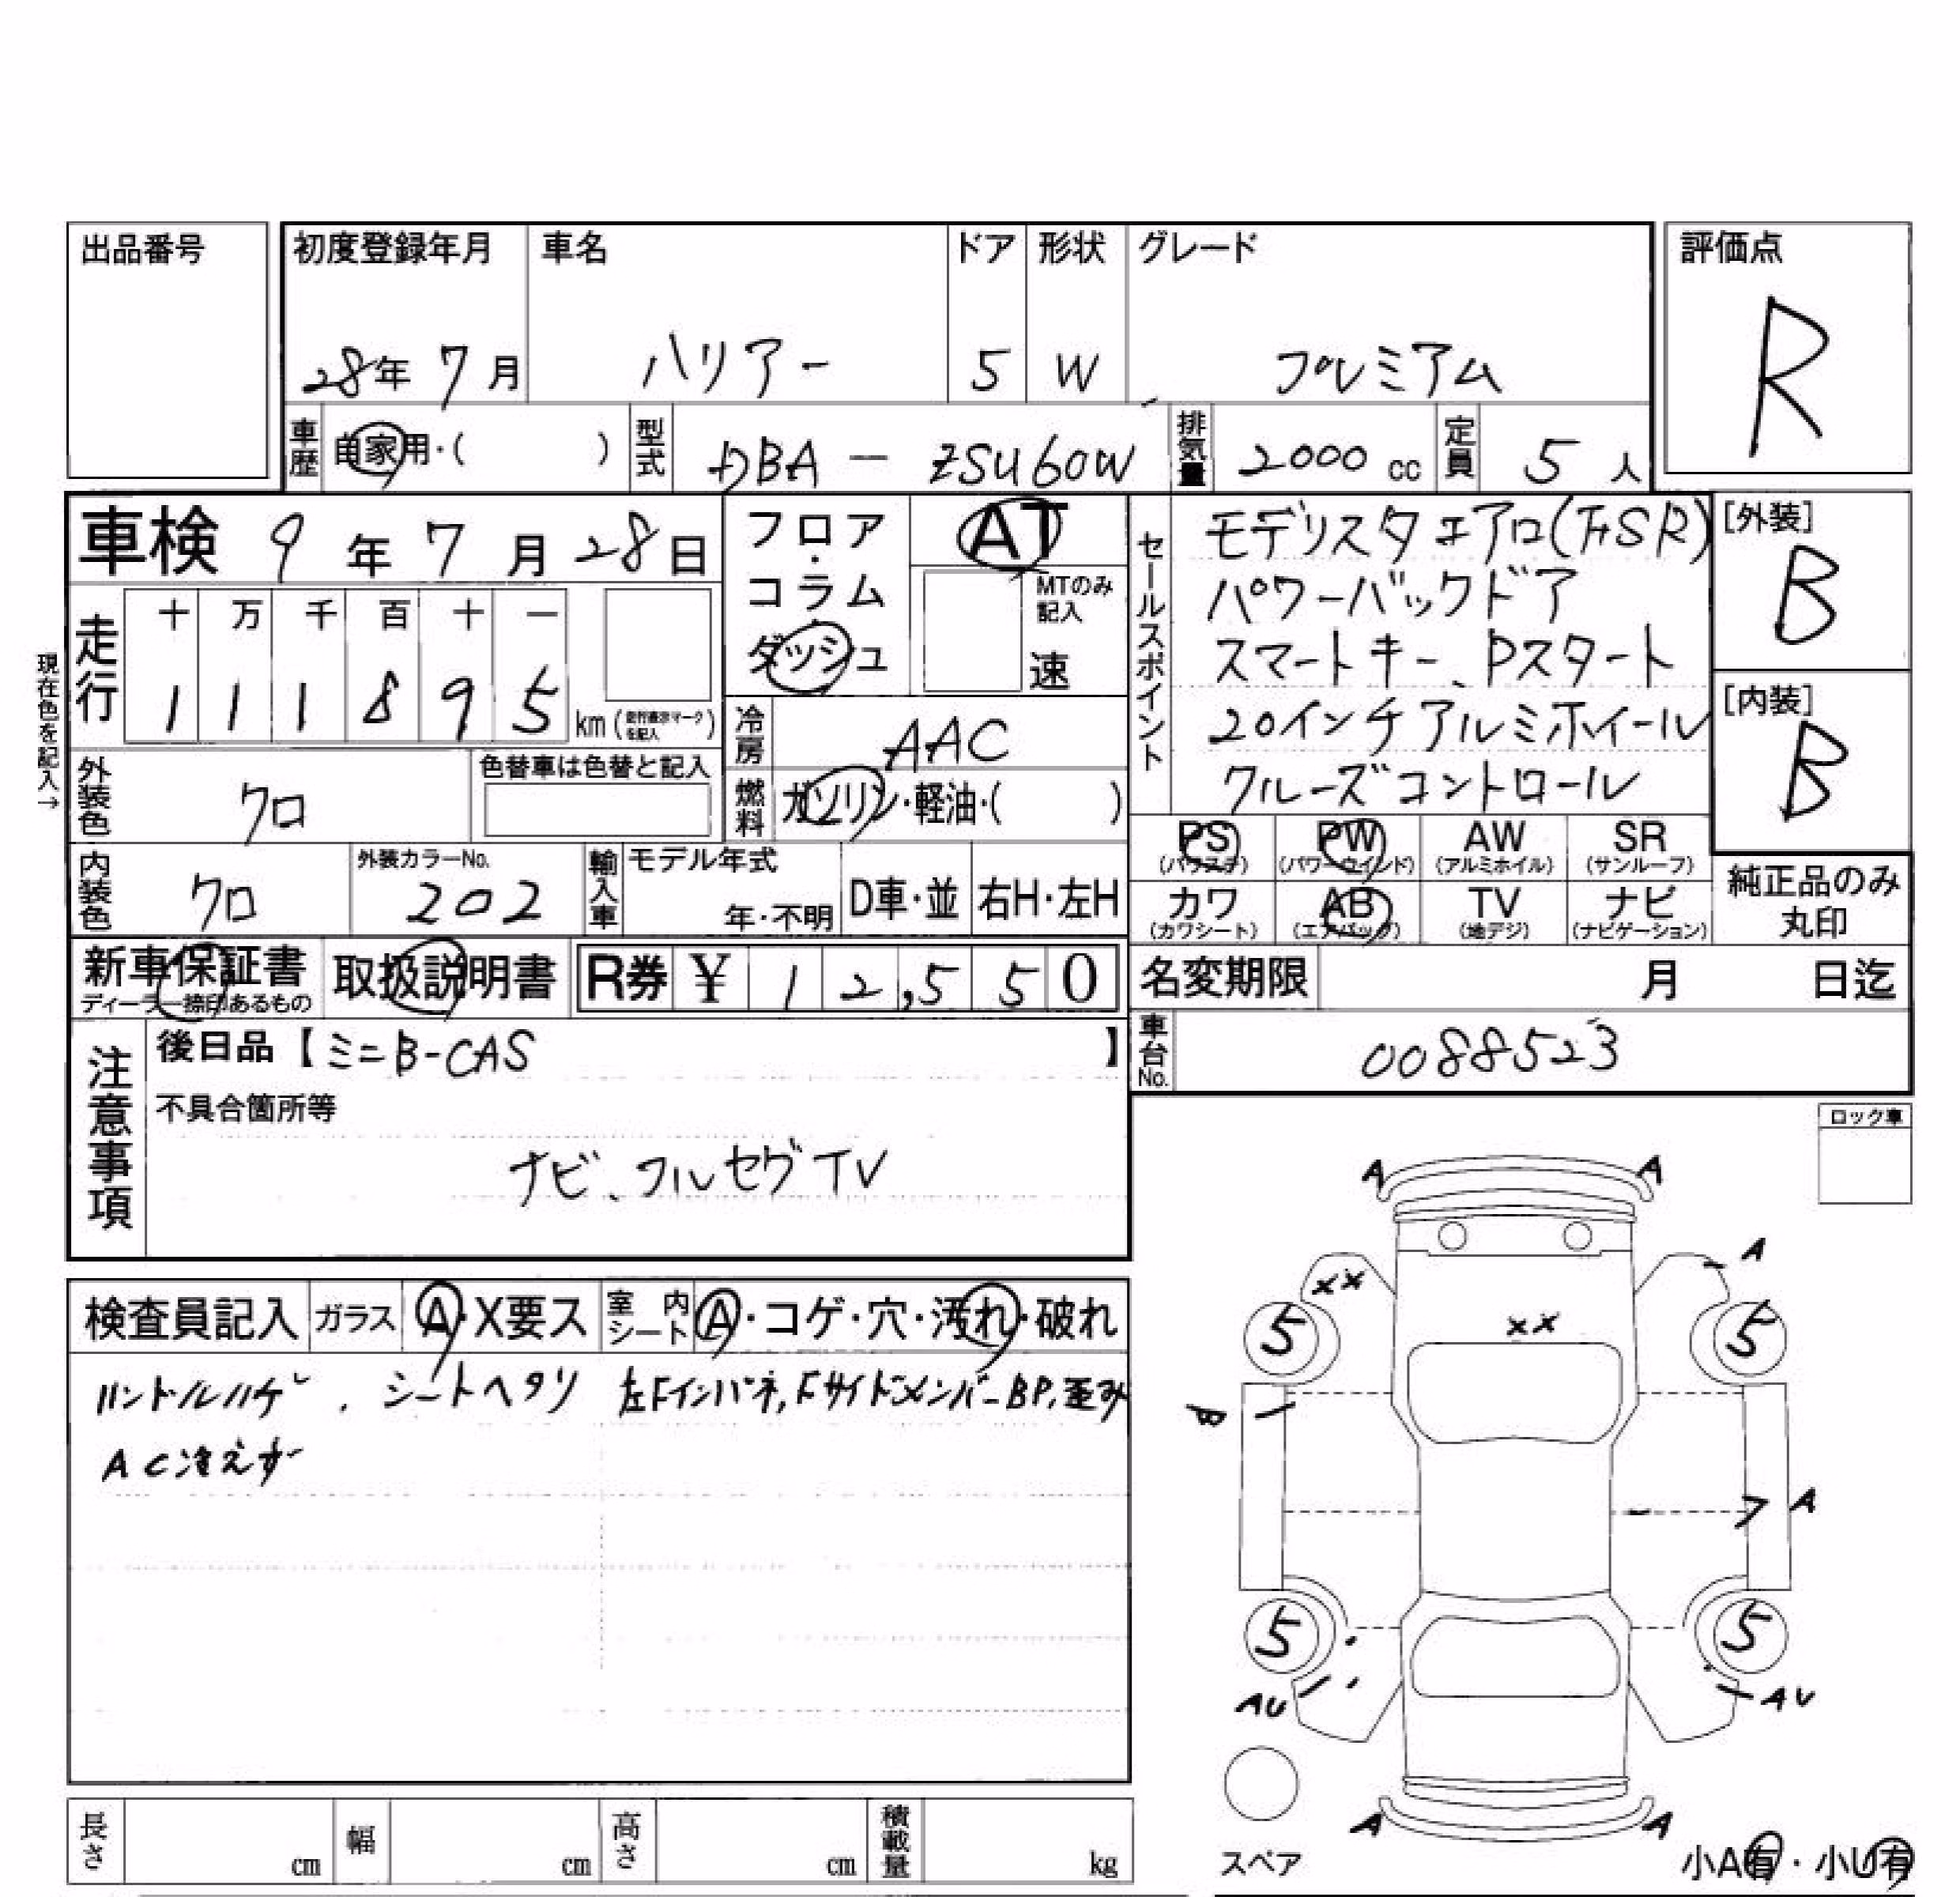 出品番号
初度登録年月 車名 ドア 形状 グレード 評価点
28年 7月 ハリアー 5 W プレミアム R
車歴 自家用・( ) 型式 DBA - ZSU60W 排気量 2000cc 定員 5人
車検 9年 7月 28日
フロア・コラム
ダッシュ
AT
MTのみ記入
速
セールスポイント
モデリスタエアロ(F.SR)
パワーバックドア
スマートキー、Pスタート
20インチアルミホイール
クルーズコントロール
[外装]
B
[内装]
B
現在色を記入→
走行
十 万 千 百 十 一
1 1 1 8 9 5 km(走行表示マークを記入)
冷房 AAC
外装色 クロ 色替車は色替と記入
燃料 ガソリン・軽油・( )
PS (パワステ) PW (パワーウインド) AW (アルミホイル) SR (サンルーフ)
カワ (カワシート) AB (エアバッグ) TV (地デジ) ナビ (ナビゲーション)
純正品のみ
丸印
内装色 クロ 外装カラーNo. 202 輸入車 モデル年式 年・不明 D車・並 右H・左H
新車保証書 ディーラー捺印あるもの 取扱説明書 R券 ¥ 12,550
名変期限 月 日迄
車台No. 0088523
注意事項
後日品【ミニB-CAS 】
不具合箇所等
ナビ、フルセグTV
ロック車
検査員記入 ガラス A・X要ス 室内シート A・コゲ・穴・汚れ・破れ
ハンドルハゲ、シートヘタリ 左Fインパネ,FサイドメンバーBP,歪み
AC冷えず
A A
A
XX
XX
5 5
B
A
5 5
AU AU
A A
スペア
小A有・小U有
長さ cm 幅 cm 高さ cm 積載量 kg